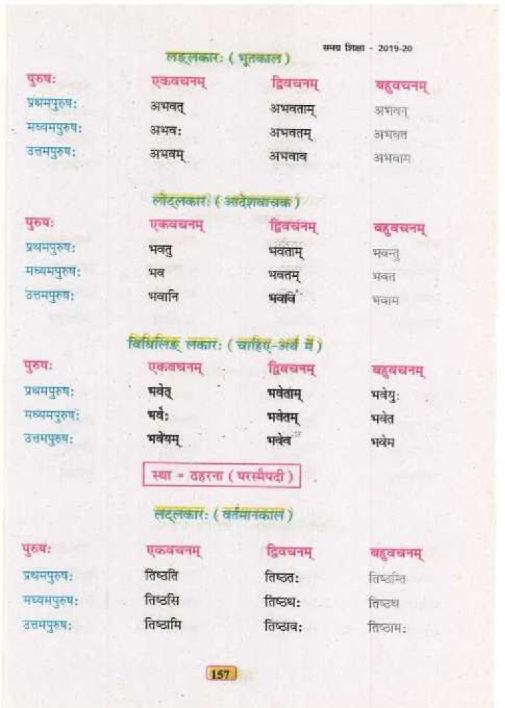 समग्र शिक्षा - 2019-20
लङ्लकारः ( भूतकाल )
पुरुषः एकवचनम् द्विवचनम् बहुवचनम्
प्रथमपुरुषः अभवत् अभवताम् अभवन्
मध्यमपुरुषः अभवः अभवतम् अभवत
उत्तमपुरुषः अभवम् अभवाव अभवाम
लोट्लकारः ( आदेशवाचक )
पुरुषः एकवचनम् द्विवचनम् बहुवचनम्
प्रथमपुरुषः भवतु भवताम् भवन्तु
मध्यमपुरुषः भव भवतम् भवत
उत्तमपुरुषः भवानि भवाव भवाम
विधिलिङ् लकारः ( चाहिए-अर्थ में )
पुरुषः एकवचनम् द्विवचनम् बहुवचनम्
प्रथमपुरुषः भवेत् भवेताम् भवेयुः
मध्यमपुरुषः भवेः भवेतम् भवेत
उत्तमपुरुषः भवेयम् भवेव भवेम
स्था = ठहरना ( परस्मैपदी )
लट्लकारः ( वर्तमानकाल )
पुरुषः एकवचनम् द्विवचनम् बहुवचनम्
प्रथमपुरुषः तिष्ठति तिष्ठतः तिष्ठन्ति
मध्यमपुरुषः तिष्ठसि तिष्ठथः तिष्ठथ
उत्तमपुरुषः तिष्ठामि तिष्ठावः तिष्ठामः
157